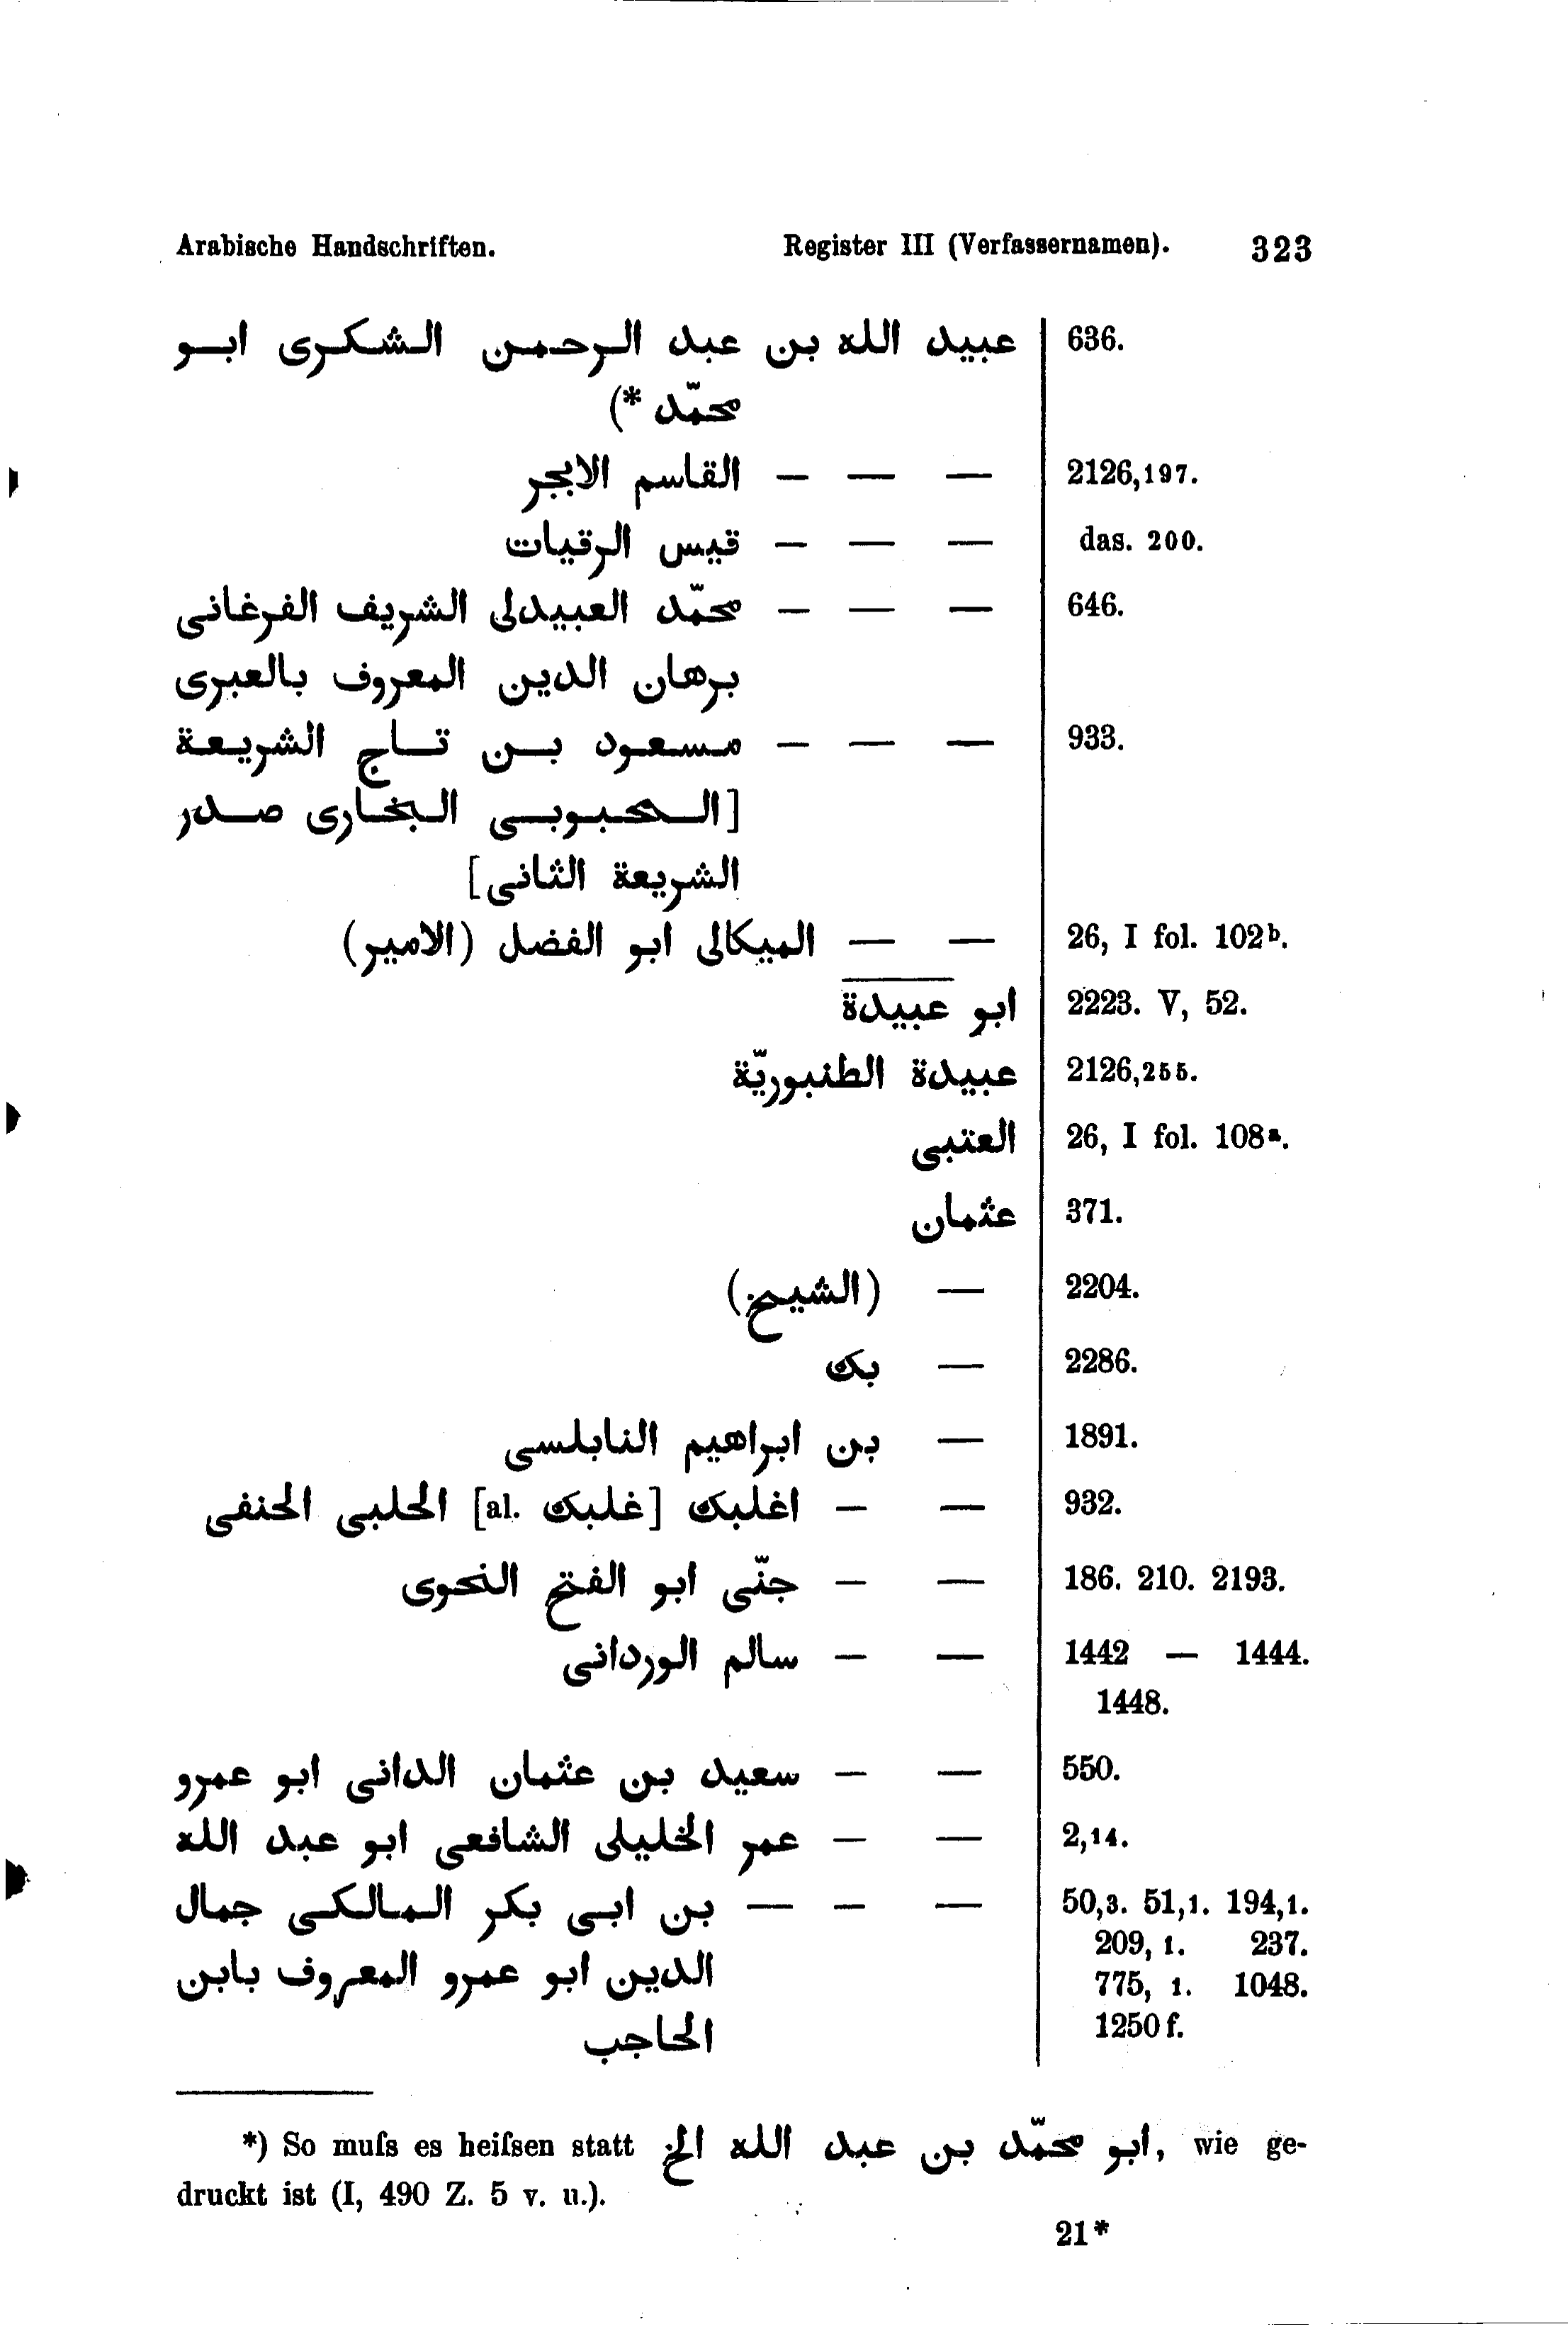 Arabische Handschriften. Register III (Verfassernamen). 323
عبيد الله بن عبد الرحمن الشكرى ابو 636.
محمّد *)
— — — القاسم الابجر 2126,197.
— — — قيس الرقيات das. 200.
— — — محمّد العبيدلى الشريف الفرغانى 646.
برهان الدين المعروف بالعبرى
— — — مسعود بن تاج الشريعة 933.
[المحبوبى البخارى صدر
الشريعة الثانى]
— — الميكالى ابو الفضل (الامير) 26, I fol. 102b.
ابو عبيدة 2223. V, 52.
عبيدة الطنبوريّة 2126,255.
العتبى 26, I fol. 108a.
عثمان 371.
— (الشيخ) 2204.
— بك 2286.
— بن ابراهيم النابلسى 1891.
— — اغلبك [al. غلبك] الحلبى الحنفى 932.
— — جنّى ابو الفتح النحوى 186. 210. 2193.
— — سالم الوردانى 1442 — 1444.
1448.
— — سعيد بن عثمان الدانى ابو عمرو 550.
— — عمر الخليلى الشافعى ابو عبد الله 2,14.
— — — بن ابى بكر المالكى جمال 50,3. 51,1. 194,1.
209, 1. 237.
الدين ابو عمرو المعروف بابن 775, 1. 1048.
الحاجب 1250 f.
*) So muſs es heiſsen statt ابو محمّد بن عبد الله الخ, wie ge-
druckt ist (I, 490 Z. 5 v. u.).
21*